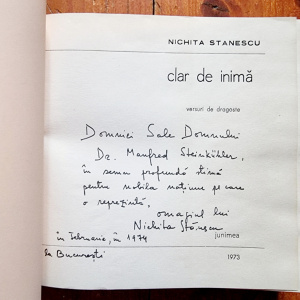 NICHITA STANESCU
clar de inimă
versuri de dragoste
Domniei Sale Domnului
Dr. Manfred Steinkühler,
în semn profundă stimă
pentru nobila națiune pe care
o reprezintă,
omagiul lui
Nichita Stănescu
în februarie, în 1974
la București
junimea
1973